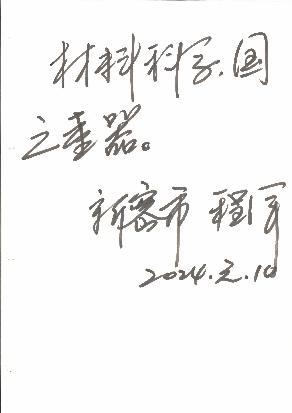 材料科学,国
之重器。
新密市 程军
2024.元.10